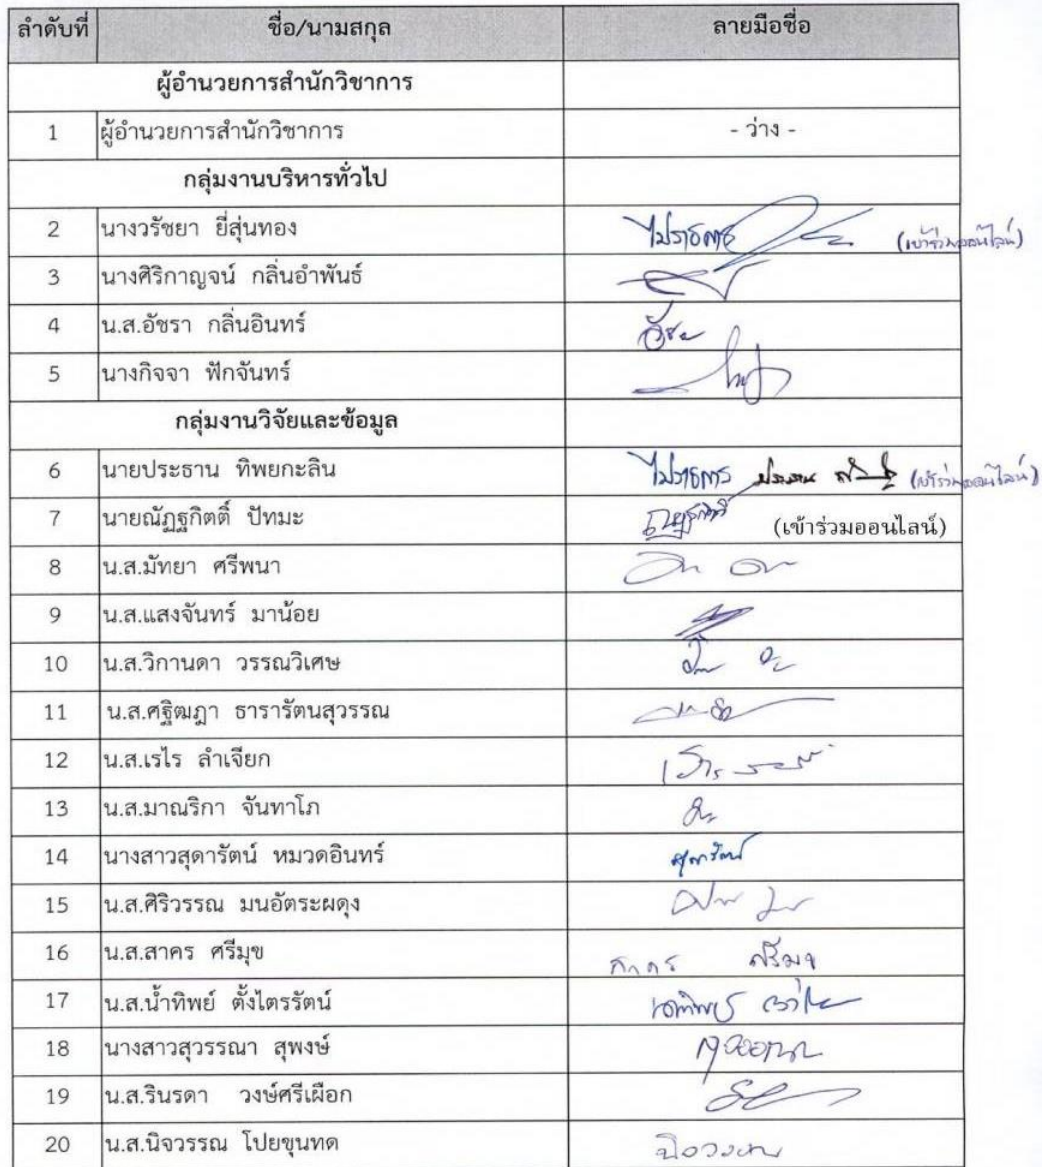 ลำดับที่ ชื่อ/นามสกุล ลายมือชื่อ
ผู้อำนวยการสำนักวิชาการ
1 ผู้อำนวยการสำนักวิชาการ - ว่าง -
กลุ่มงานบริหารทั่วไป
2 นางวรัชยา ยี่สุ่นทอง ไปราชการ (เข้าร่วมออนไลน์)
3 นางศิริกาญจน์ กลิ่นอำพันธ์
4 น.ส.อัชรา กลิ่นอินทร์
5 นางกิจจา ฟักจันทร์
กลุ่มงานวิจัยและข้อมูล
6 นายประธาน ทิพยกะลิน ไปราชการ (เข้าร่วมออนไลน์)
7 นายณัฏฐกิตติ์ ปัทมะ (เข้าร่วมออนไลน์)
8 น.ส.มัทยา ศรีพนา
9 น.ส.แสงจันทร์ มาน้อย
10 น.ส.วิกานดา วรรณวิเศษ
11 น.ส.ศฐิฒฎา ธารารัตนสุวรรณ
12 น.ส.เรไร ลำเจียก
13 น.ส.มาณริกา จันทาโภ
14 นางสาวสุดารัตน์ หมวดอินทร์ สุดารัตน์
15 น.ส.ศิริวรรณ มนอัตระผดุง
16 น.ส.สาคร ศรีมุข สาคร ศรีมุข
17 น.ส.น้ำทิพย์ ตั้งไตรรัตน์
18 นางสาวสุวรรณา สุพงษ์
19 น.ส.รินรดา วงษ์ศรีเผือก
20 น.ส.นิจวรรณ โปยขุนทด